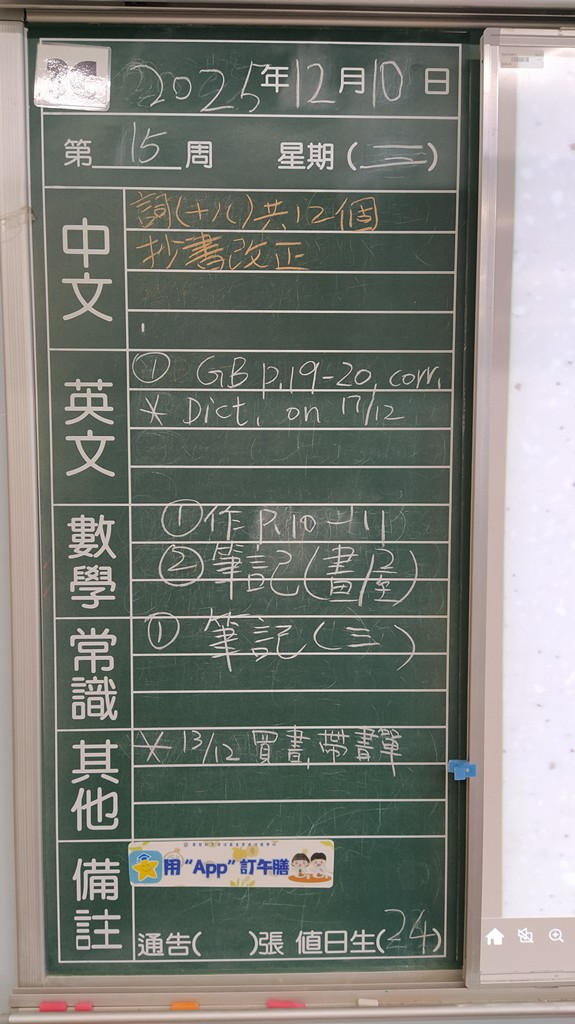 2025年12月10日
第15周 星期(三)
中文
詞(十八)共12個
抄書改正
英文
① GB p.19-20, corr.
* Dict. on 17/12
數學
①作 p.10-11
②筆記(
常識
① 筆記(三)
其他
* 13/12 買書,帶書單
備註
用“App”訂午膳
通告( )張 值日生(24)